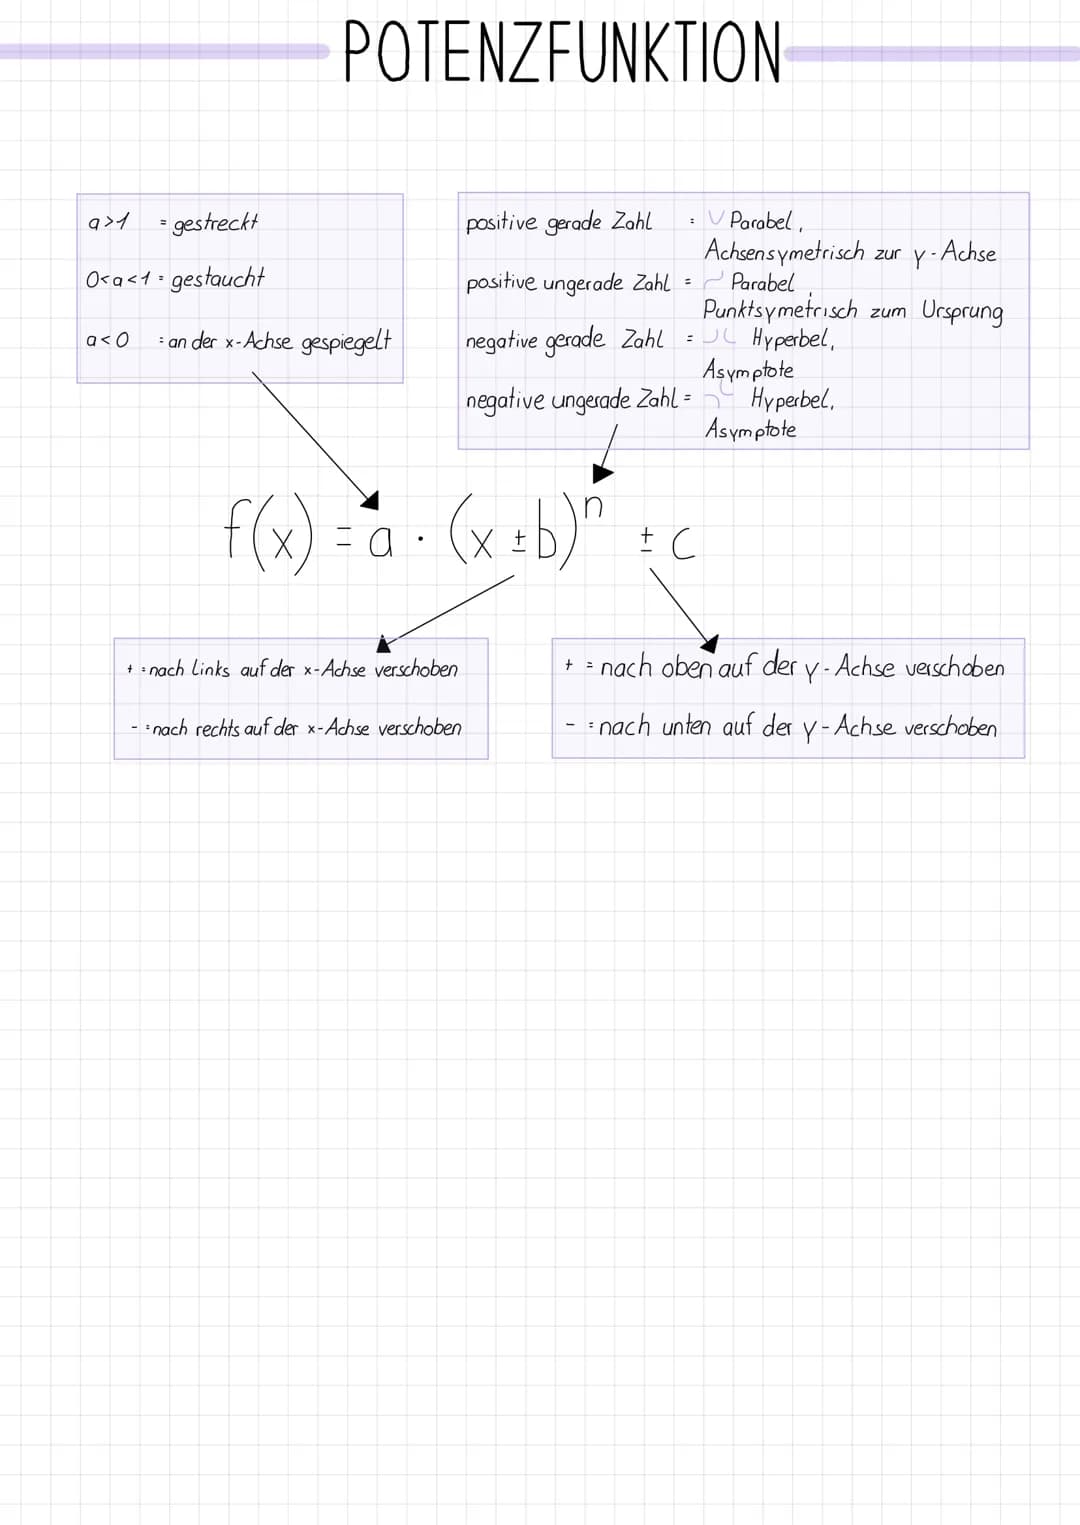 POTENZFUNKTION
a>1 = gestreckt
0<a<1 = gestaucht
a<0 = an der x-Achse gespiegelt
positive gerade Zahl = Parabel,
Achsensymetrisch zur y-Achse
positive ungerade Zahl = Parabel,
Punktsymetrisch zum Ursprung
negative gerade Zahl = Hyperbel,
Asymptote
negative ungerade Zahl = Hyperbel,
Asymptote
f(x) = a · (x ± b)ⁿ ± c
+ = nach links auf der x-Achse verschoben
- = nach rechts auf der x-Achse verschoben
+ = nach oben auf der y-Achse verschoben
- = nach unten auf der y-Achse verschoben